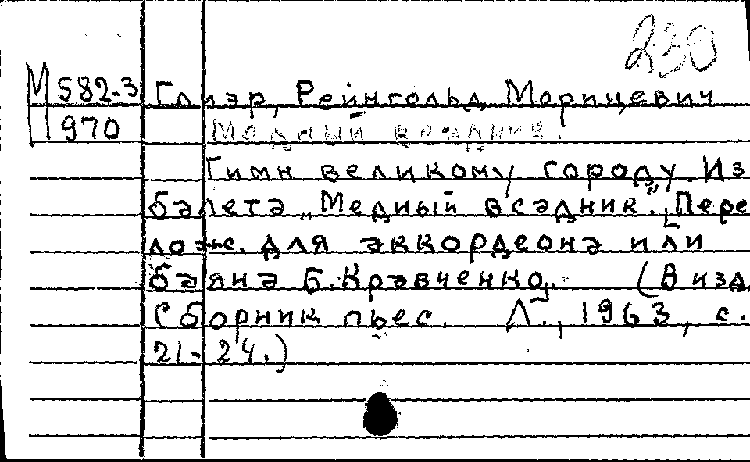 230
М 582-3 Глиэр, Рейнгольд Морицевич
970 Медный всадник.
Гимн великому городу. Из
балета „Медный всадник“. [Пере
лож. для аккордеона или
баяна Б. Кравченко]. (В изд.
Сборник пьес. Л., 1963, с.
21-24.)